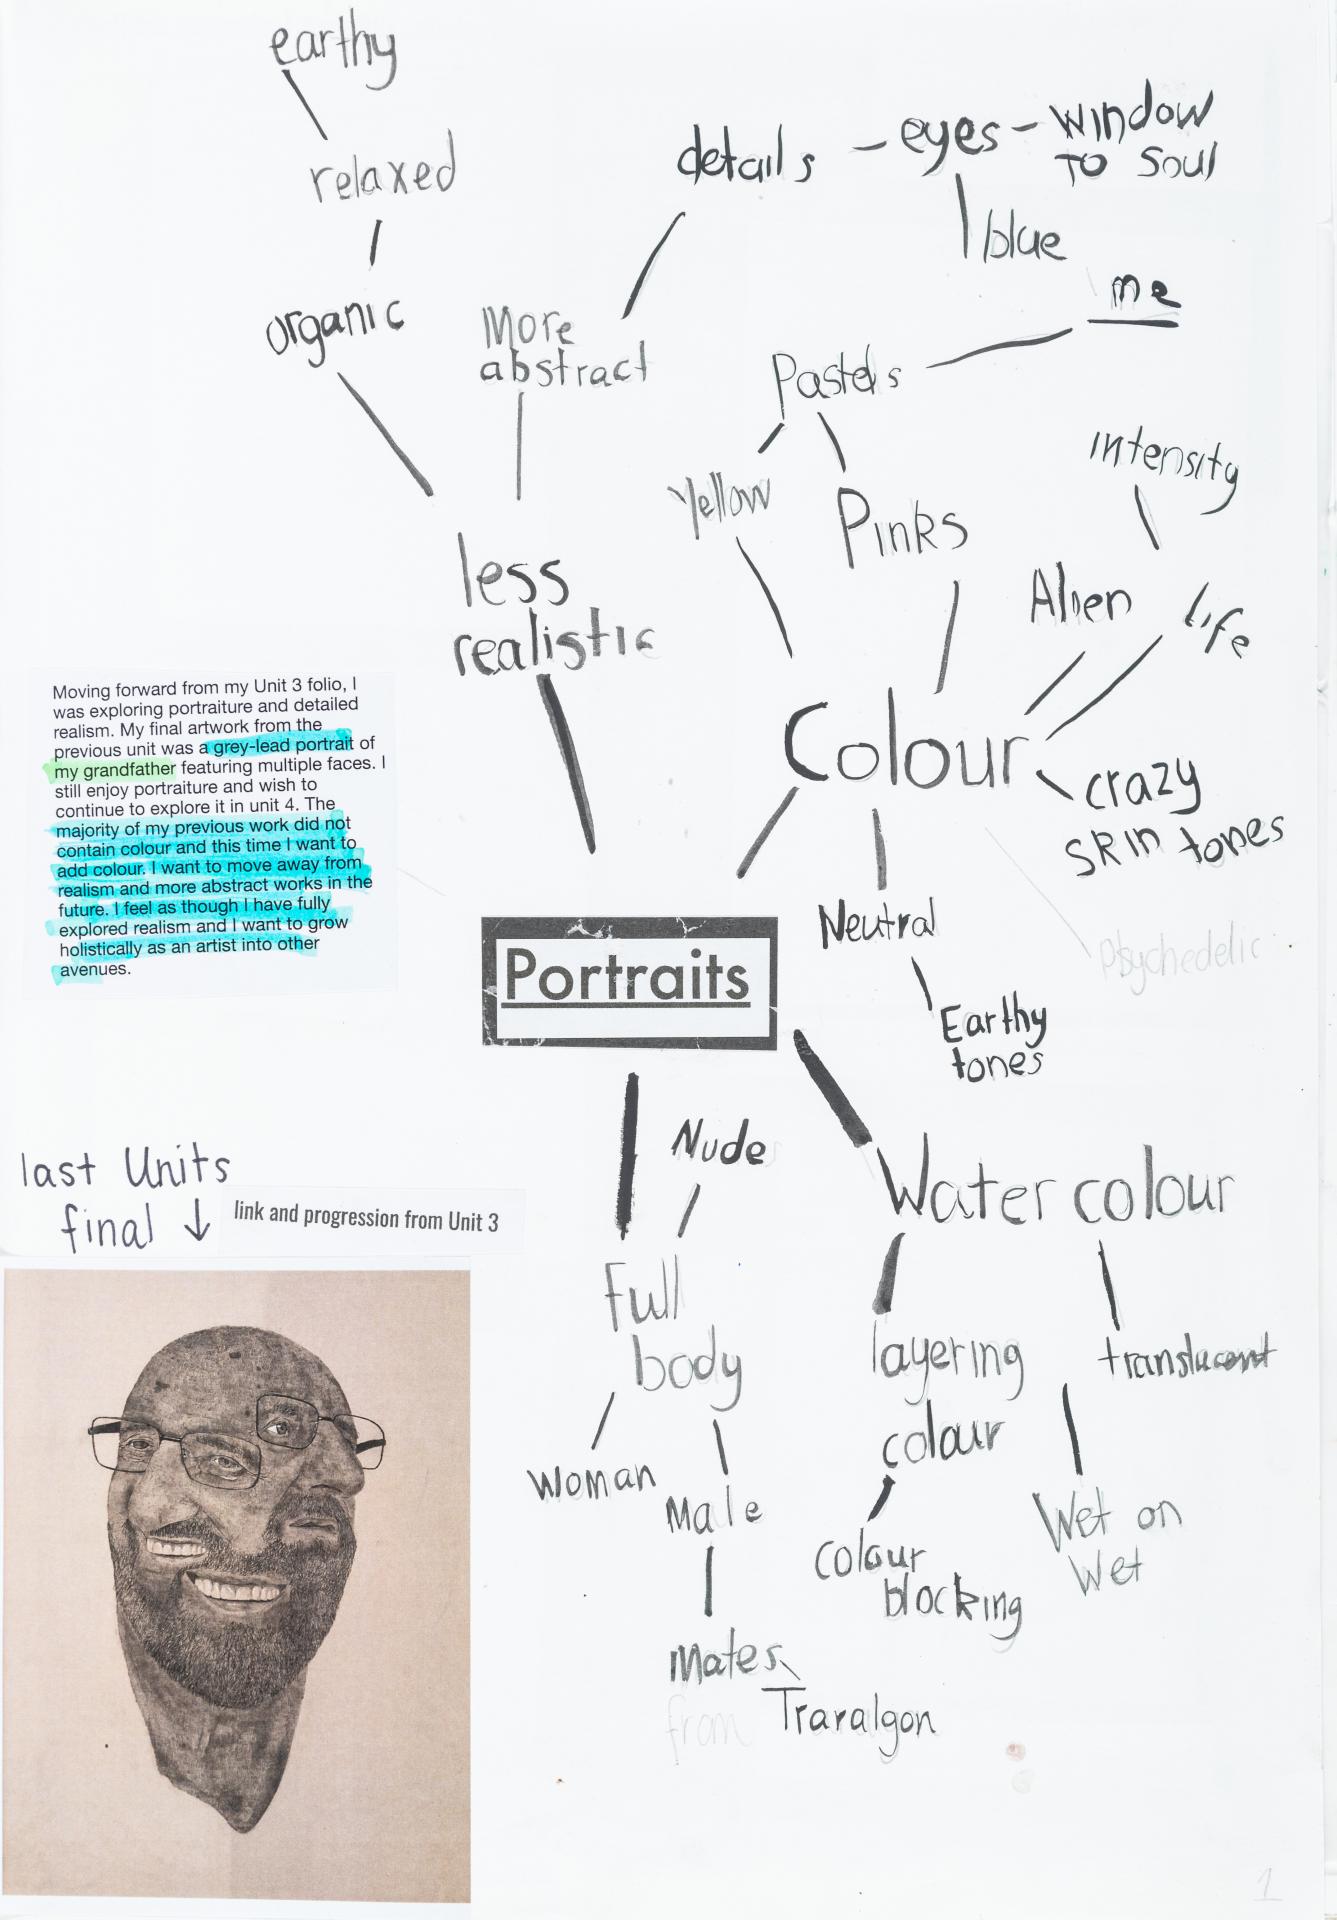 earthy
relaxed
organic
details - eyes - window
To Soul
blue
me
More
abstract
Pastels
Yellow
Pinks
intensity
Alien
Life
less
realistic
Colour
crazy
skin tones
Psychedelic
Neutral
Earthy
tones
Moving forward from my Unit 3 folio, I
was exploring portraiture and detailed
realism. My final artwork from the
previous unit was a grey-lead portrait of
my grandfather featuring multiple faces. I
still enjoy portraiture and wish to
continue to explore it in unit 4. The
majority of my previous work did not
contain colour and this time I want to
add colour. I want to move away from
realism and more abstract works in the
future. I feel as though I have fully
explored realism and I want to grow
holistically as an artist into other
avenues.
Portraits
Nude
Water colour
last Units
final ↓
link and progression from Unit 3
Full
body
woman
Male
Mates
from Traralgon
layering
colour
colour
blocking
translucent
Wet on
Wet
1